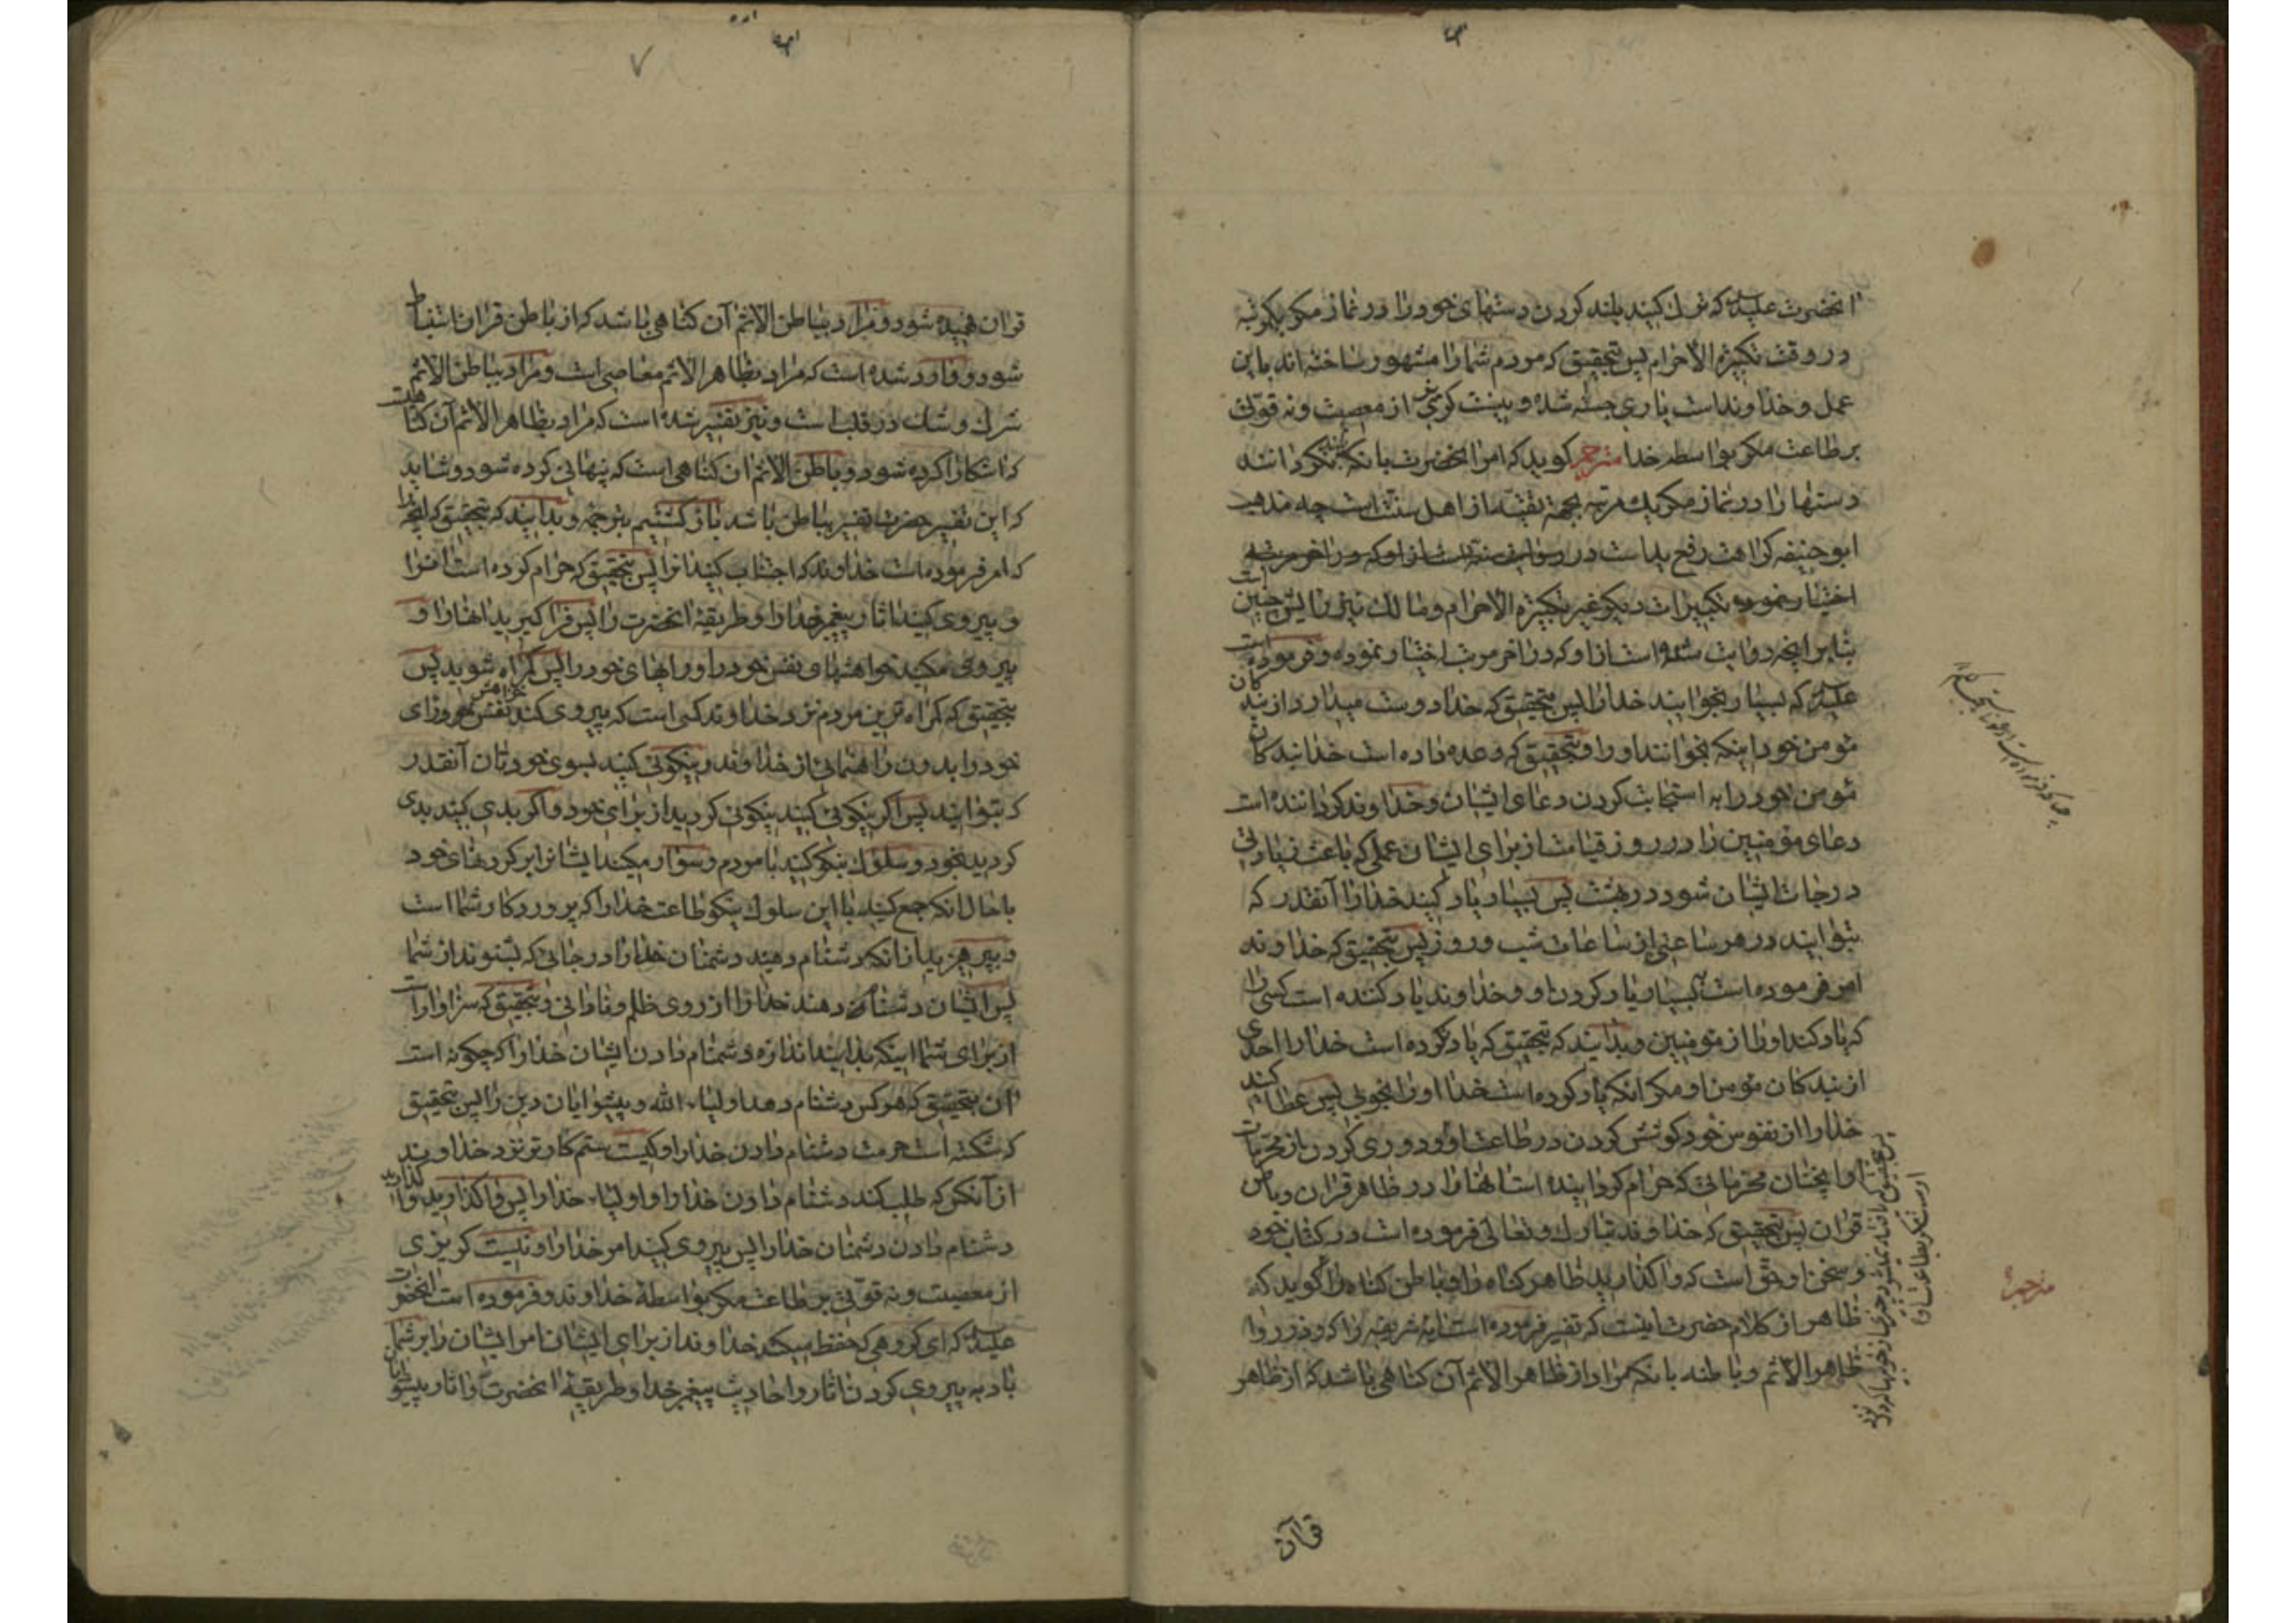 انحضرت علیه السلام که ترک کنید بلند کردن دستهای خود را در نماز مکر یکمرتبه
در وقت تکبیرة الاحرام پس بتحقیق که مردم شما را مشهور ساخته اند باین
عمل و خداوند است یاری جسته شده و نیست کریزی از معصیت و نه قوتی
بر طاعت مکر بواسطه خدا مترجم کوید که امر انحضرت بانکه بلند نکردانند
دستها را در نماز مکر یک مرتبه بجهة تقیه از اهل سنت است چه مذهب
ابو حنیفه کراهت رفع ید است در
اختیار نموده تکبیرات دیکر غیر تکبیرة الاحرام و مالک نیز را پس چنین است
بنابر انچه روایت شده است از او که در اخر مرتبه اختیار نموده و فرموده است
علیه السلام که بسیار بخوانید خدا را پس بتحقیق که خدا دوست میدارد از بندکان
مؤمن خود اینکه بخوانند او را و بتحقیق که وعده داده است خدا بندکان
مؤمن خود را به استجابت کردن دعای ایشان و خداوند کرداننده است
دعای مؤمنین را در روز قیامت از برای ایشان عملی که باعث زیادتی
درجات ایشان شود در بهشت پس بسیار یاد کنید خدا را آنقدر که
بتوانید در هر ساعتی از ساعات شب و روز پس بتحقیق که خداوند
امر فرموده است به بسیار یاد کردن او و خداوند یاد کننده است کسی را
که یاد کند او را از مؤمنین و بدانید که بتحقیق که یاد نکرده است خدا را احدی
از بندکان مؤمن او مکر انکه یاد کرده است خدا او را بخوبی پس عطا کنید
خدا را از نفوس خود کوشش کردن در طاعت او و دوری کردن از محرمات
او انچنان محرماتی که حرام کردانیده است انها را در ظاهر قران و باطن
قران پس بتحقیق که خداوند تبارک و تعالی فرموده است در کتاب خود
و سخن او حق است که واکذارید ظاهر کناه را و باطن کناه را کوید که
ظاهر از کلام حضرت اینست که تفسیر فرموده است آیه شریفه را که و ذروا
ظاهر الاثم و باطنه بانکه مراد از ظاهر الاثم آن کناهی باشد که از ظاهر
مترجم
قرآن
قران فهمیده شود و مراد بباطن الاثم آن کناهی باشد که از باطن قران استنباط
شود و وارد شده است که مراد بظاهر الاثم معاصی است و مراد بباطن الاثم
شرک و شک در قلب است و نیز تفسیر شده است که مراد بظاهر الاثم آن کناهیست
که اشکارا کرده شود و باطن الاثم ان کناهی است که پنهانی کرده شود و شاید
که این تفسیر حضرت تفسیر بباطن باشد باز کشتیم بترجمه و بدانید که بتحقیق که انچه را
که امر فرموده است خداوند که اجتناب کنید انرا پس بتحقیق که حرام کرده است انرا
و پیروی کنید اثار پیغمبر خدا را و طریقه انحضرت را پس فرا کیرید انها را و
پیروی مکنید خواهشهای نفس خود را و رایهای خود را پس کمراه شوید پس
بتحقیق که کمراه ترین مردم نزد خداوند کسی است که پیروی کند خواهش نفس خود و رای
خود را بدون راهنمائی از خداوند و نیکوئی کنید بسوی خودتان آنقدر
که بتوانید پس اکر نیکوئی کنید نیکوئی کردید از برای خود و اکر بدی کنید بدی
کردید بخود و سلوک نیکو کنید با مردم و سوار مکنید ایشان را بر کردنهای خود
با حال انکه جمع کنید با این سلوک نیکو طاعت خدا را که پروردکار شما است
و بپرهیزید از انکه دشنام دهید دشمنان خدا را در جائی که بشنوند از شما
پس ایشان دشنام دهند خدا را از روی ظلم و نادانی و بتحقیق که سزاوار است
از برای شما اینکه بدانید اندازه دشنام دادن ایشان خدا را که چکونه است
آن بتحقیق که هر کس دشنام دهد اولیاء الله و پیشوایان دین را پس بتحقیق
که شکسته است حرمت دشنام دادن خدا را و کیست ستم کارتر نزد خداوند
از آنکس که طلب کند دشنام دادن خدا را و اولیاء خدا را پس واکذارید واکذارید
دشنام دادن دشمنان خدا را پس پیروی کنید امر خدا را و نیست کریزی
از معصیت و نه قوتی بر طاعت مکر بواسطه خداوند و فرموده است انحضرت
علیه السلام که ای کروهی که حفظ میکند خداوند از برای ایشان امر ایشان را بر شما
باد به پیروی کردن اثار و احادیث پیغمبر خدا و طریقه انحضرت و اثار پیشوایان